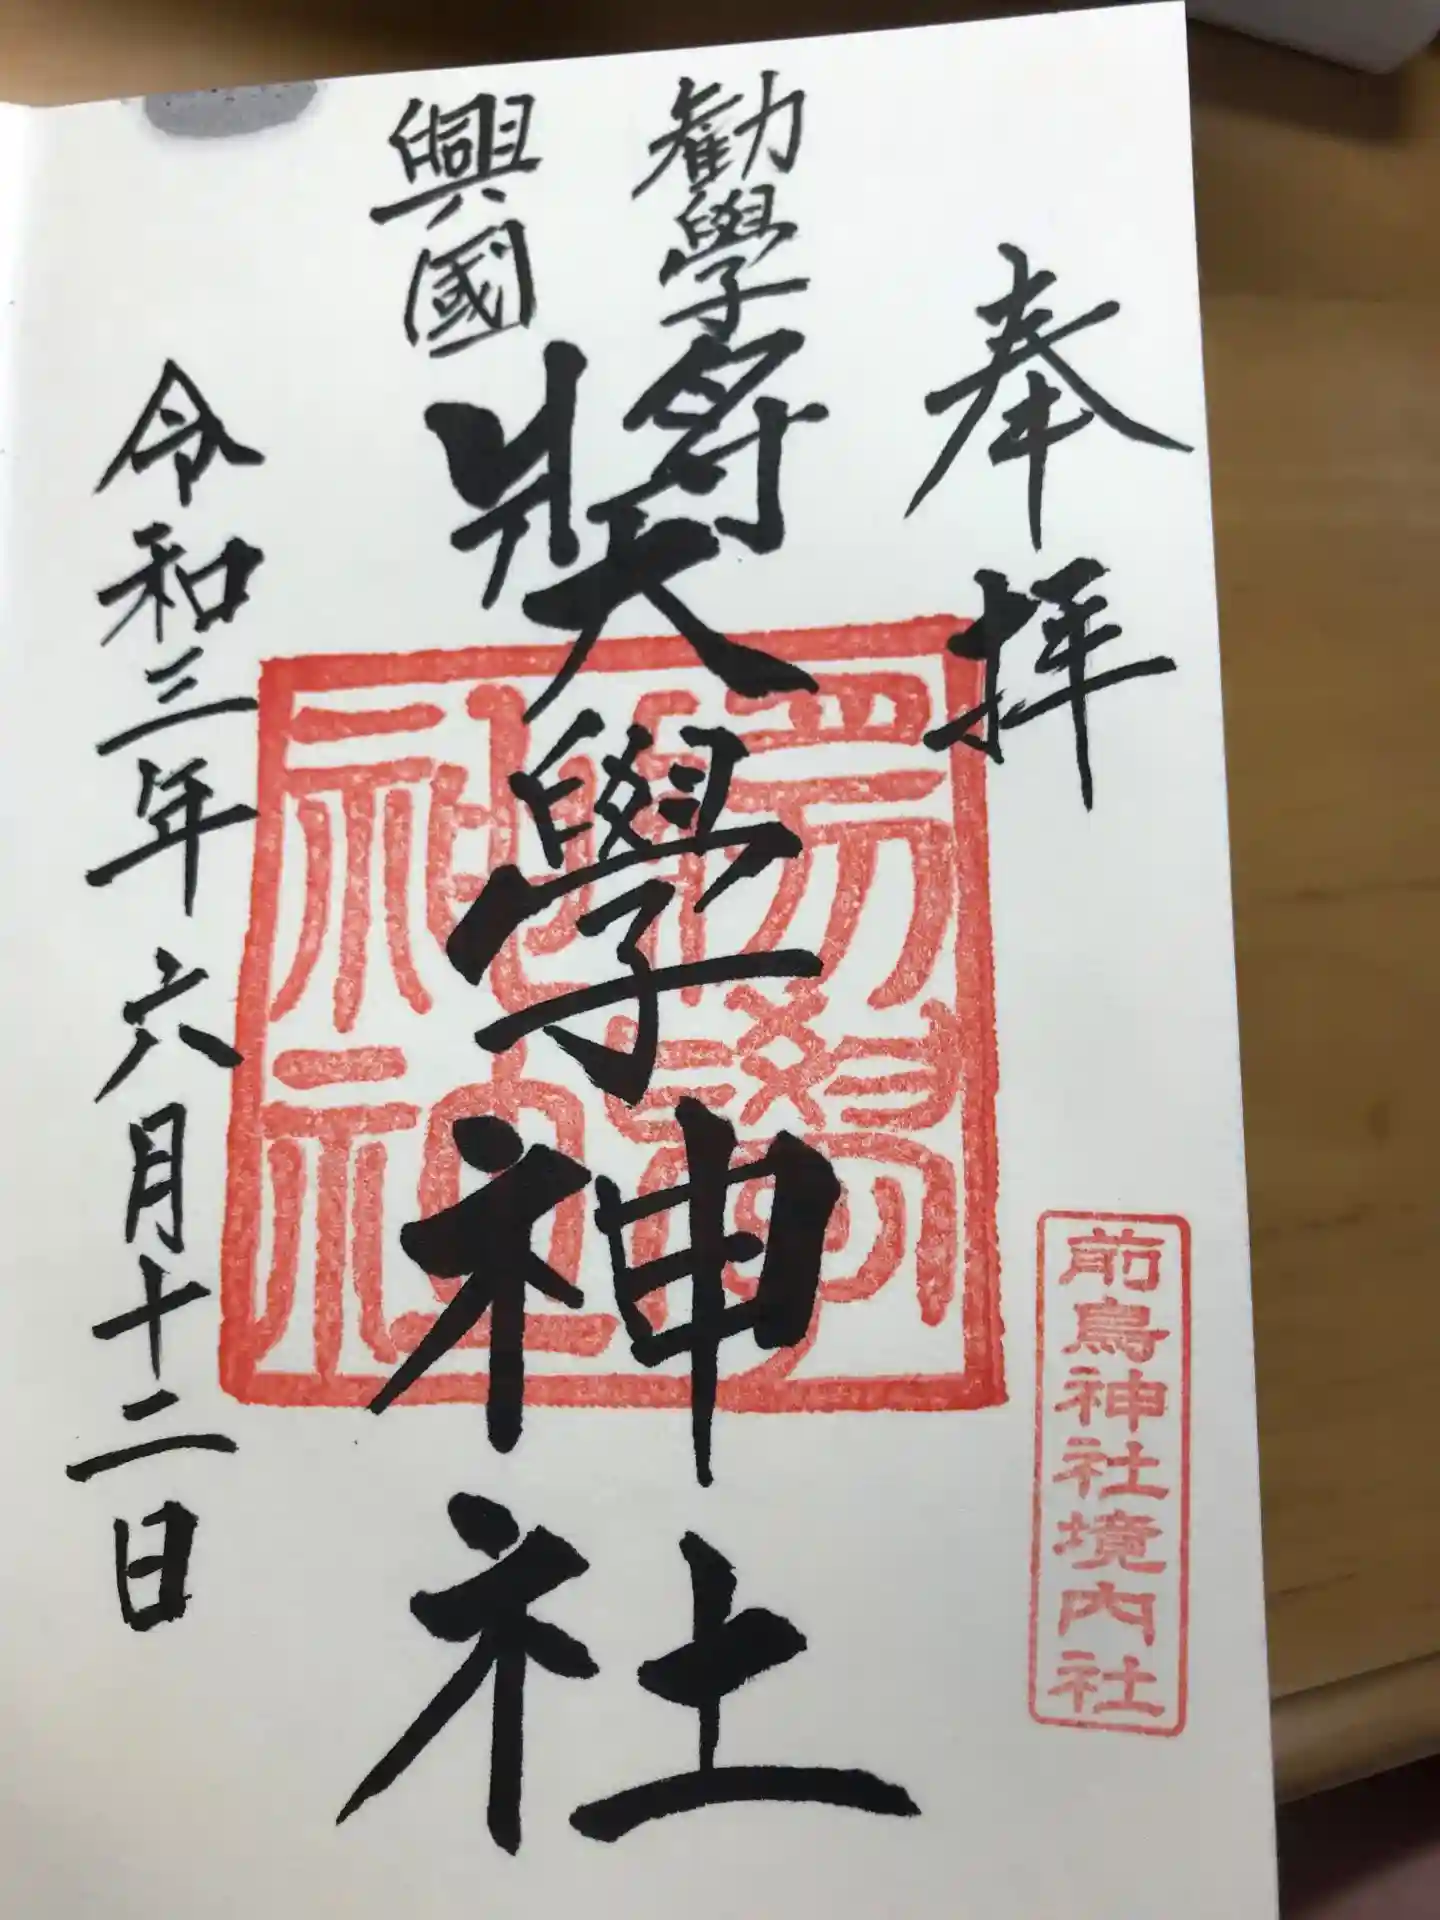 奉拝
前鳥神社境内社
勸學
興國
奬學神社
令和三年六月十二日